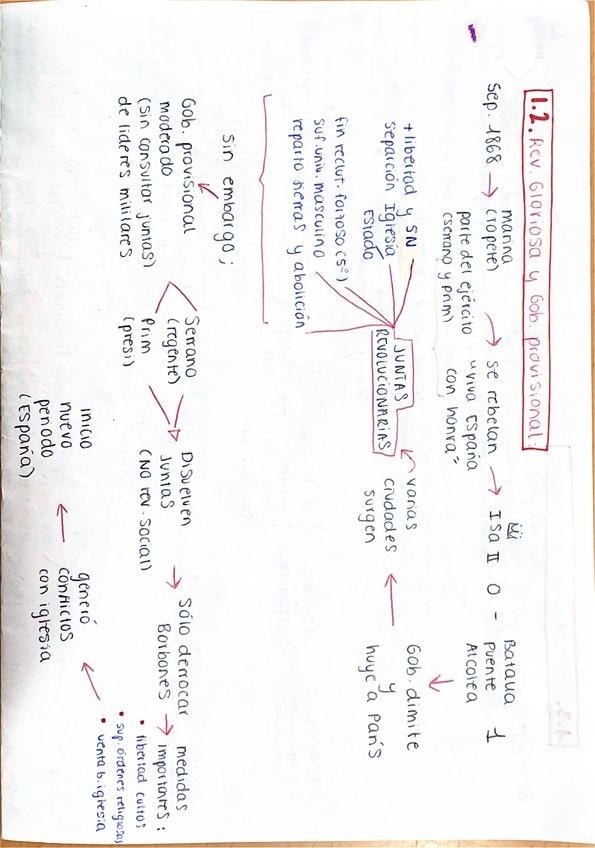 1.2. Rev. Gloriosa y Gob. provisional:
Sep. 1868 → marina
(Topete)
parte del ejército
(serrano y Prim)
→ se rebelan
"viva España
con honra"
→ Isa II 0 - 1
Batalla
Puente
Alcolea
Gob. dimite
y
huye a París
varias
ciudades
surgen
JUNTAS
REVOLUCIONARIAS
+ libertad y SN
separación Iglesia
Estado
fin reclut. forzoso (5º)
suf. univ. masculino
reparto tierras y abolición
sin embargo;
Gob. provisional
moderado
(sin consultar juntas)
de líderes militares
Serrano
(regente)
Prim
(presi)
Disuelven
juntas
(No rev. social)
Sólo derrocar
Borbones
→ medidas
importantes:
• libertad cultos
• sup. órdenes religiosas
• venta b. iglesia
generó
conflictos
con iglesia
inicio
nuevo
periodo
(España)